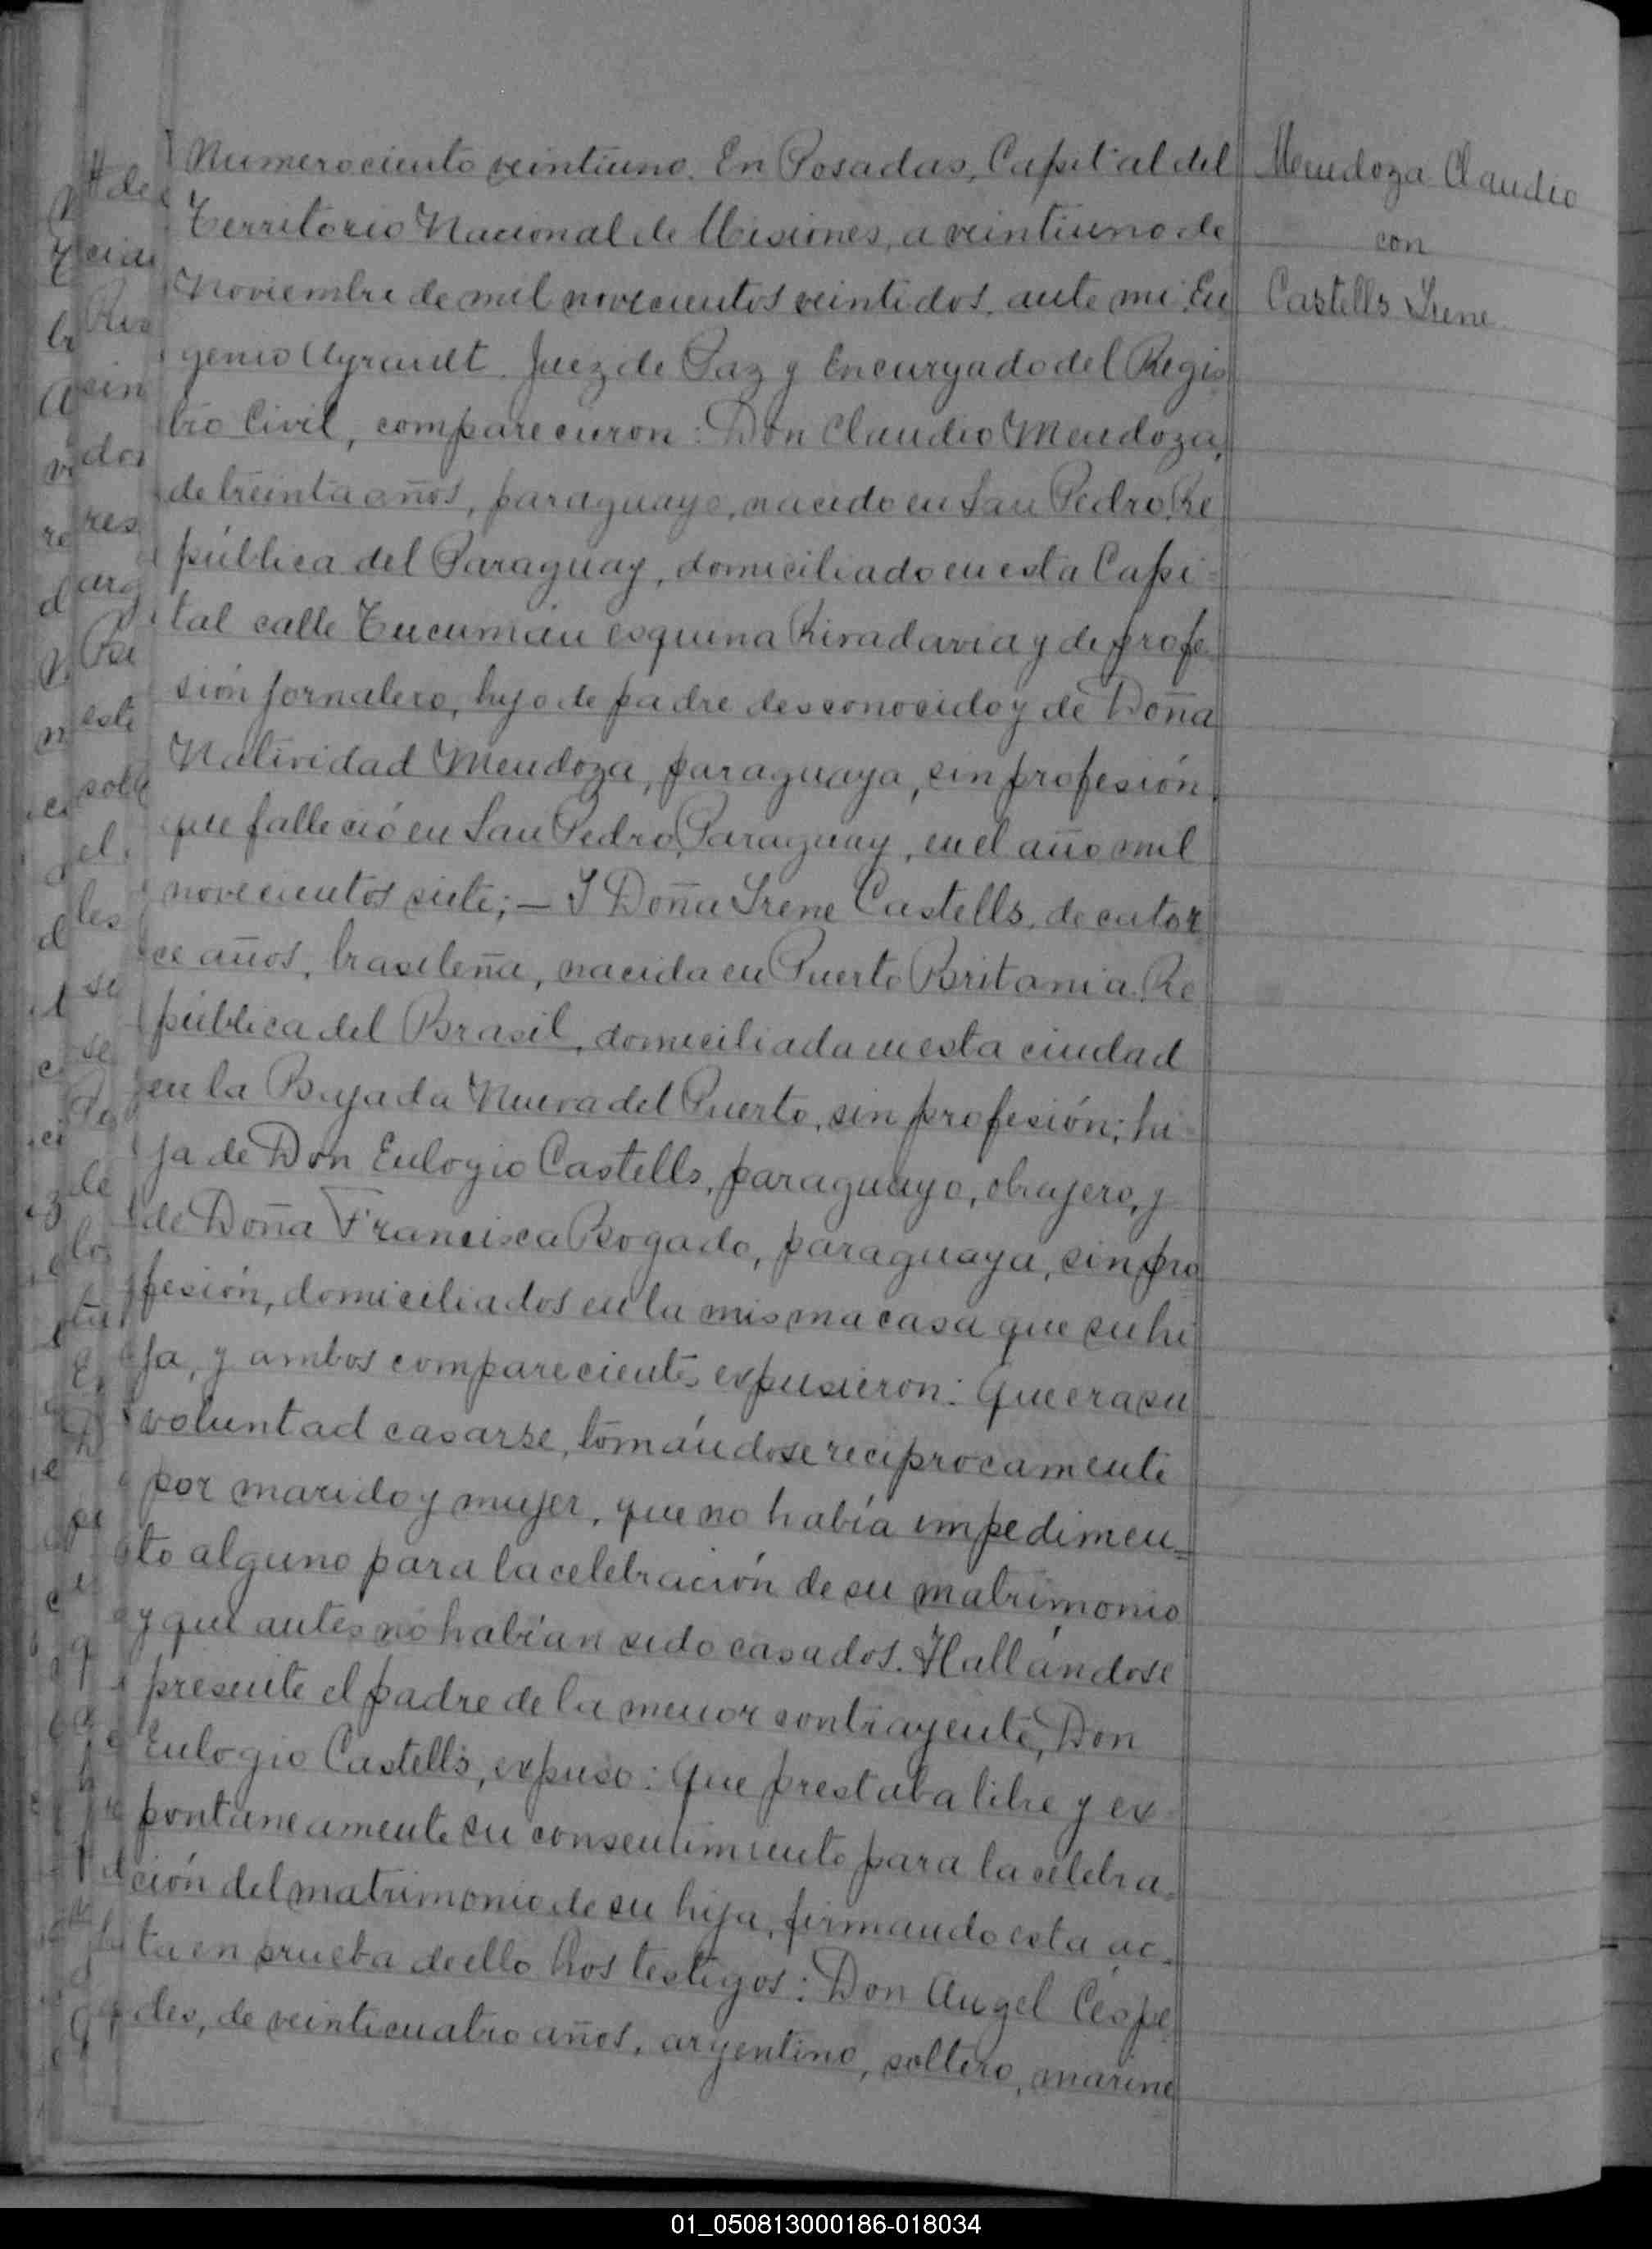 Numero ciento veintiuno. En Posadas, Capital del
Territorio Nacional de Misiones, a veintiuno de
Noviembre de mil novecientos veintidos, ante mi: Eu
genio Ayrault. Juez de Paz y Encargado del Regis
tro Civil, comparecieron: Don Claudio Mendoza,
de treinta años, paraguayo, nacido en San Pedro, Re
pública del Paraguay, domiciliado en esta Capi-
tal calle Tucumán esquina Rivadavia y de profe
sión jornalero, hijo de padre desconocido y de Doña
Natividad Mendoza, paraguaya, sin profesión,
que falleció en San Pedro, Paraguay, en el año mil
novecientos siete; — I Doña Irene Castells, de cator
ce años, brasileña, nacida en Puerto Britania, Re
pública del Brasil, domiciliada en esta ciudad
en la Bajada Nueva del Puerto, sin profesión; hi-
ja de Don Eulogio Castells, paraguayo, obrajero, y
de Doña Francisca Bogado, paraguaya, sin pro
fesión, domiciliados en la misma casa que su hi
ja, y ambos comparecientes expusieron: Que era su
voluntad casarse, tomándose reciprocamente
por marido y mujer, que no había impedimen=
to alguno para la celebración de su matrimonio
y que antes no habían sido casados. Hallándose
presente el padre de la menor contrayente, Don
Eulogio Castells, expuso: Que prestaba libre y ex
pontaneamente su consentimiento para la celebra-
ción del matrimonio de su hija, firmando esta ac-
ta en prueba de ello los testigos: Don Angel Céspe
des, de veinticuatro años, argentino, soltero, marine
Mendoza Claudio
con
Castells Irene
01_050813000186-018034